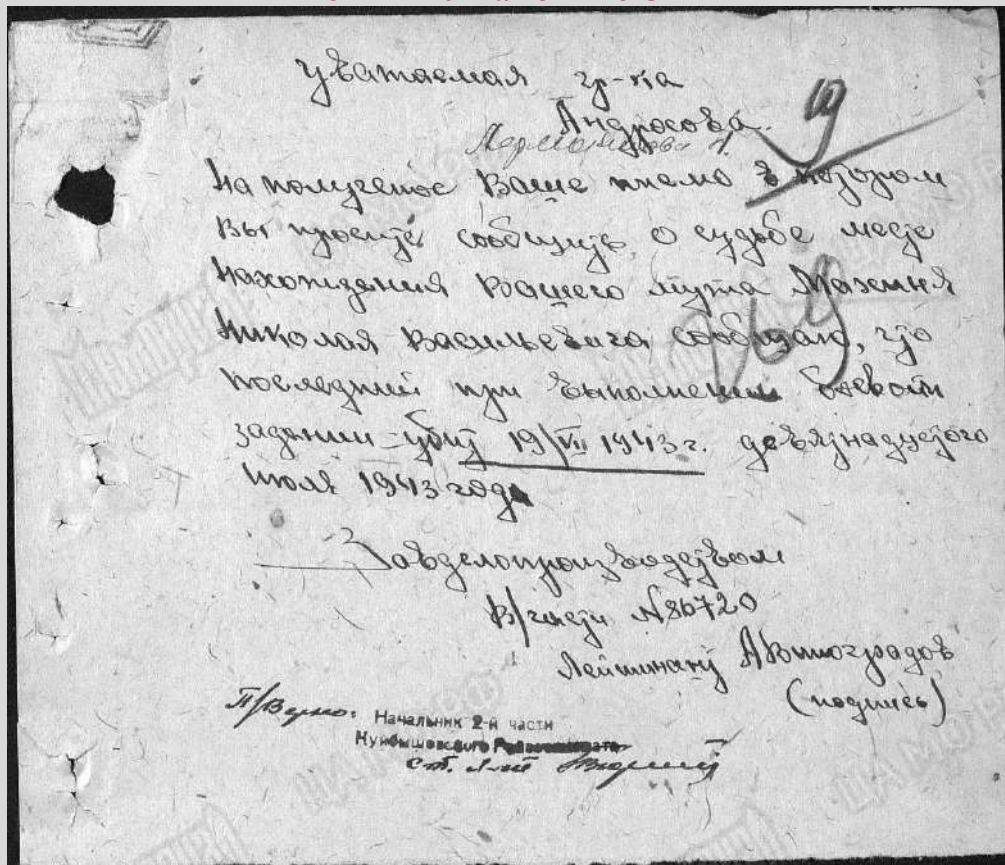 Уважаемая гр-ка
Андросова
19
На полученое Ваше письмо в котором
Вы просите сообщить о судьбе месте
нахождения Вашего мужа
Николая Васильевича сообщаю, что
169
последний при выполнении боевом
задании - убит 19/VII 1943 г. девятнадцатого
июля 1943 года
Завделопроизводством
В/части №86720
Лейтинант АВиноградов
(подпись)
П/Верно: Начальник 2-й части
Куйбышевского Райвоенкомата
ст. л-нт